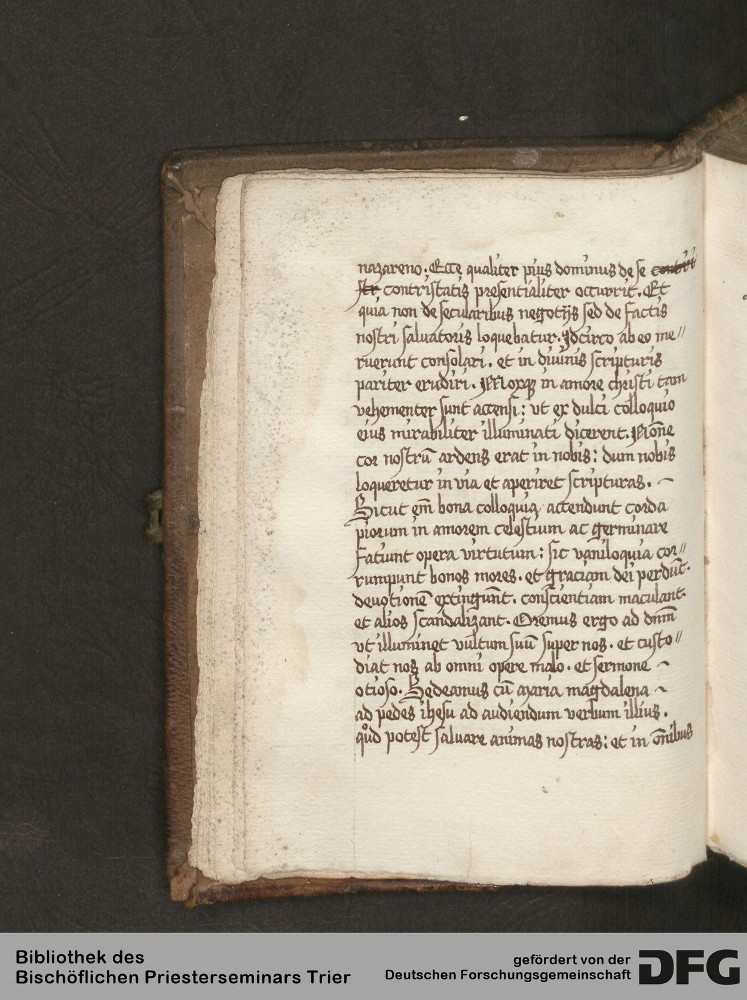 nazareno. Ecce qualiter pius dominus de se
contristatis presentialiter occurrit. Et
quia non de secularibus negotijs sed de factis
nostri saluatoris loquebatur. Idcirco ab eo me//
ruerunt consolari. et in diuinis scripturis
pariter erudiri. Moxq3 in amore christi tam
vehementer sunt accensi: vt ex dulci colloquio
eius mirabiliter illuminati dicerent. Nōne
cor nostrū ardens erat in nobis: dum nobis
loqueretur in via et aperiret scripturas. ~
Sicut em̄ bona colloquia accendunt corda
piorum in amorem celestium ac germinare
faciunt opera virtutum: sic vaniloquia cor//
rumpunt bonos mores. et graciam dei perdūt.
deuotionē extingūnt. conscientiam maculant.
et alios scandalizant. Oremus ergo ad dn̄m
vt illuminet vultum suū super nos. et custo//
diat nos ab omni opere malo. et sermone ~
otioso. Sedeamus cū maria magdalena ~
ad pedes ihesu ad audiendum verbum illius.
qͦd potest saluare animas nostras: et in om̄ibus
Bibliothek des
Bischöflichen Priesterseminars Trier
gefördert von der
Deutschen Forschungsgemeinschaft
DFG